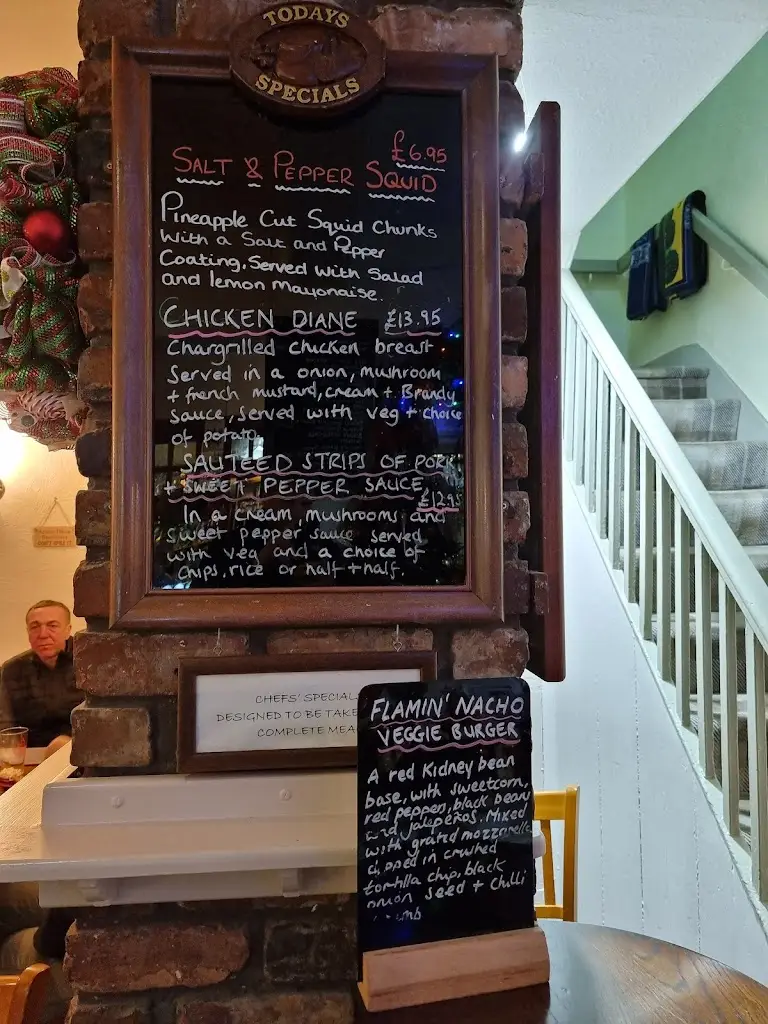 TODAYS
SPECIALS
£6.95
SALT & PEPPER SQUID
Pineapple Cut Squid Chunks
With a Salt and Pepper
Coating, Served with Salad
and lemon Mayonaise.
CHICKEN DIANE £13.95
Chargrilled chicken breast
Served in a onion, mushroom
+ french mustard, cream + Brandy
Sauce, served with veg + choice
of potato
SAUTEED STRIPS OF PORK
+ SWEET PEPPER SAUCE
£12.95
In a cream, mushrooms and
Sweet pepper sauce served
with veg and a choice of
Chips, rice or half + half.
CHEFS' SPECIAL
DESIGNED TO BE TAKE
COMPLETE MEA
FLAMIN' NACHO
VEGGIE BURGER
A red Kidney bean
base, with sweetcorn,
red peppers, black bean
and jalapeños. Mixed
with gratd mozzarella
in crushed
tortilla chip, black
onion seed + chilli